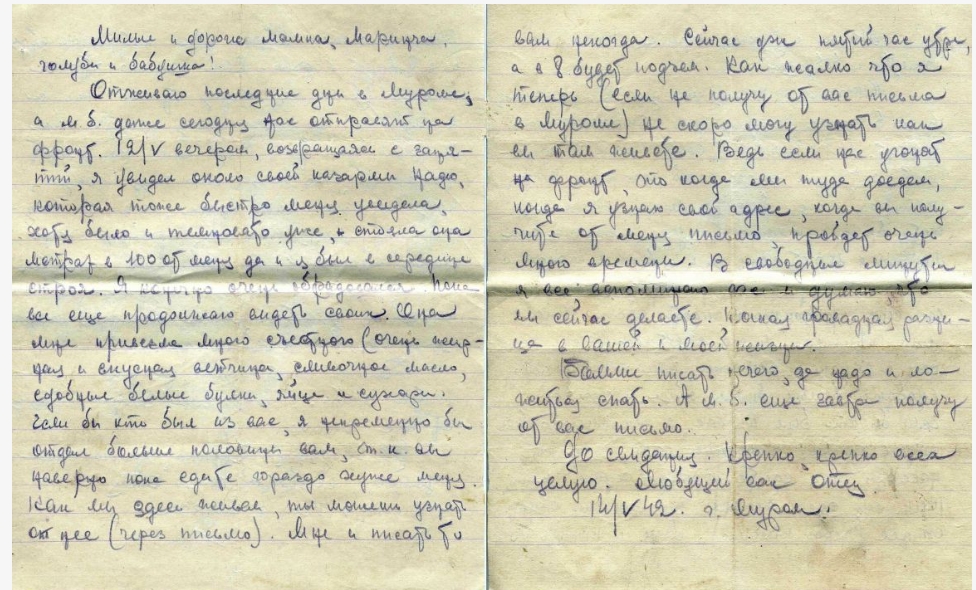 Милые и дорогие мамка, Маринча,
голуби и бабушка!
Отживаю последние дни в Муроме,
а м.б. даже сегодня нас отправят на
фронт. 12/V вечером, возвращаясь с заня-
тий, я увидел около своей казармы Надю,
которая тоже быстро меня увидела,
хотя было и темновато уже, и стояла она
метрах в 100 от меня да и я был в середине
строя. Я конечно очень обрадовался. Пока
все еще продолжаю видеть своих. Она
мне привезла много съестного (очень
и вкусная ветчина, сливочное масло,
сдобные белые булки, яйца и сухари.
Если бы кто был из вас, я непременно бы
отдал больше половины вам, т.к. вы
наверно пока едите гораздо хуже меня.
Как мы здесь живем, ты можешь узнать
от нее (через письмо). Мне и писать то
вам некогда. Сейчас уже пятый час утра,
а в 8 будет подъем. Как жалко что я
теперь (если не получу от вас письма
в Муроме) не скоро могу узнать как
вы там живете. Ведь если нас угонят
на фронт, это когда мы туда доедем,
когда я узнаю свой адрес, когда вы полу-
чите от меня письмо, пройдет очень
много времени. В свободные минуты
я все вспоминаю вас и думаю что
вы сейчас делаете. Какая громадная разни-
ца в вашей и моей жизни.
Больше писать нечего, да надо и ло-
житься спать. А м.б. еще завтра получу
от вас письмо.
До свидания. Крепко, крепко всех
целую. Любящий вас Отец
14/V 42. г. Муром.